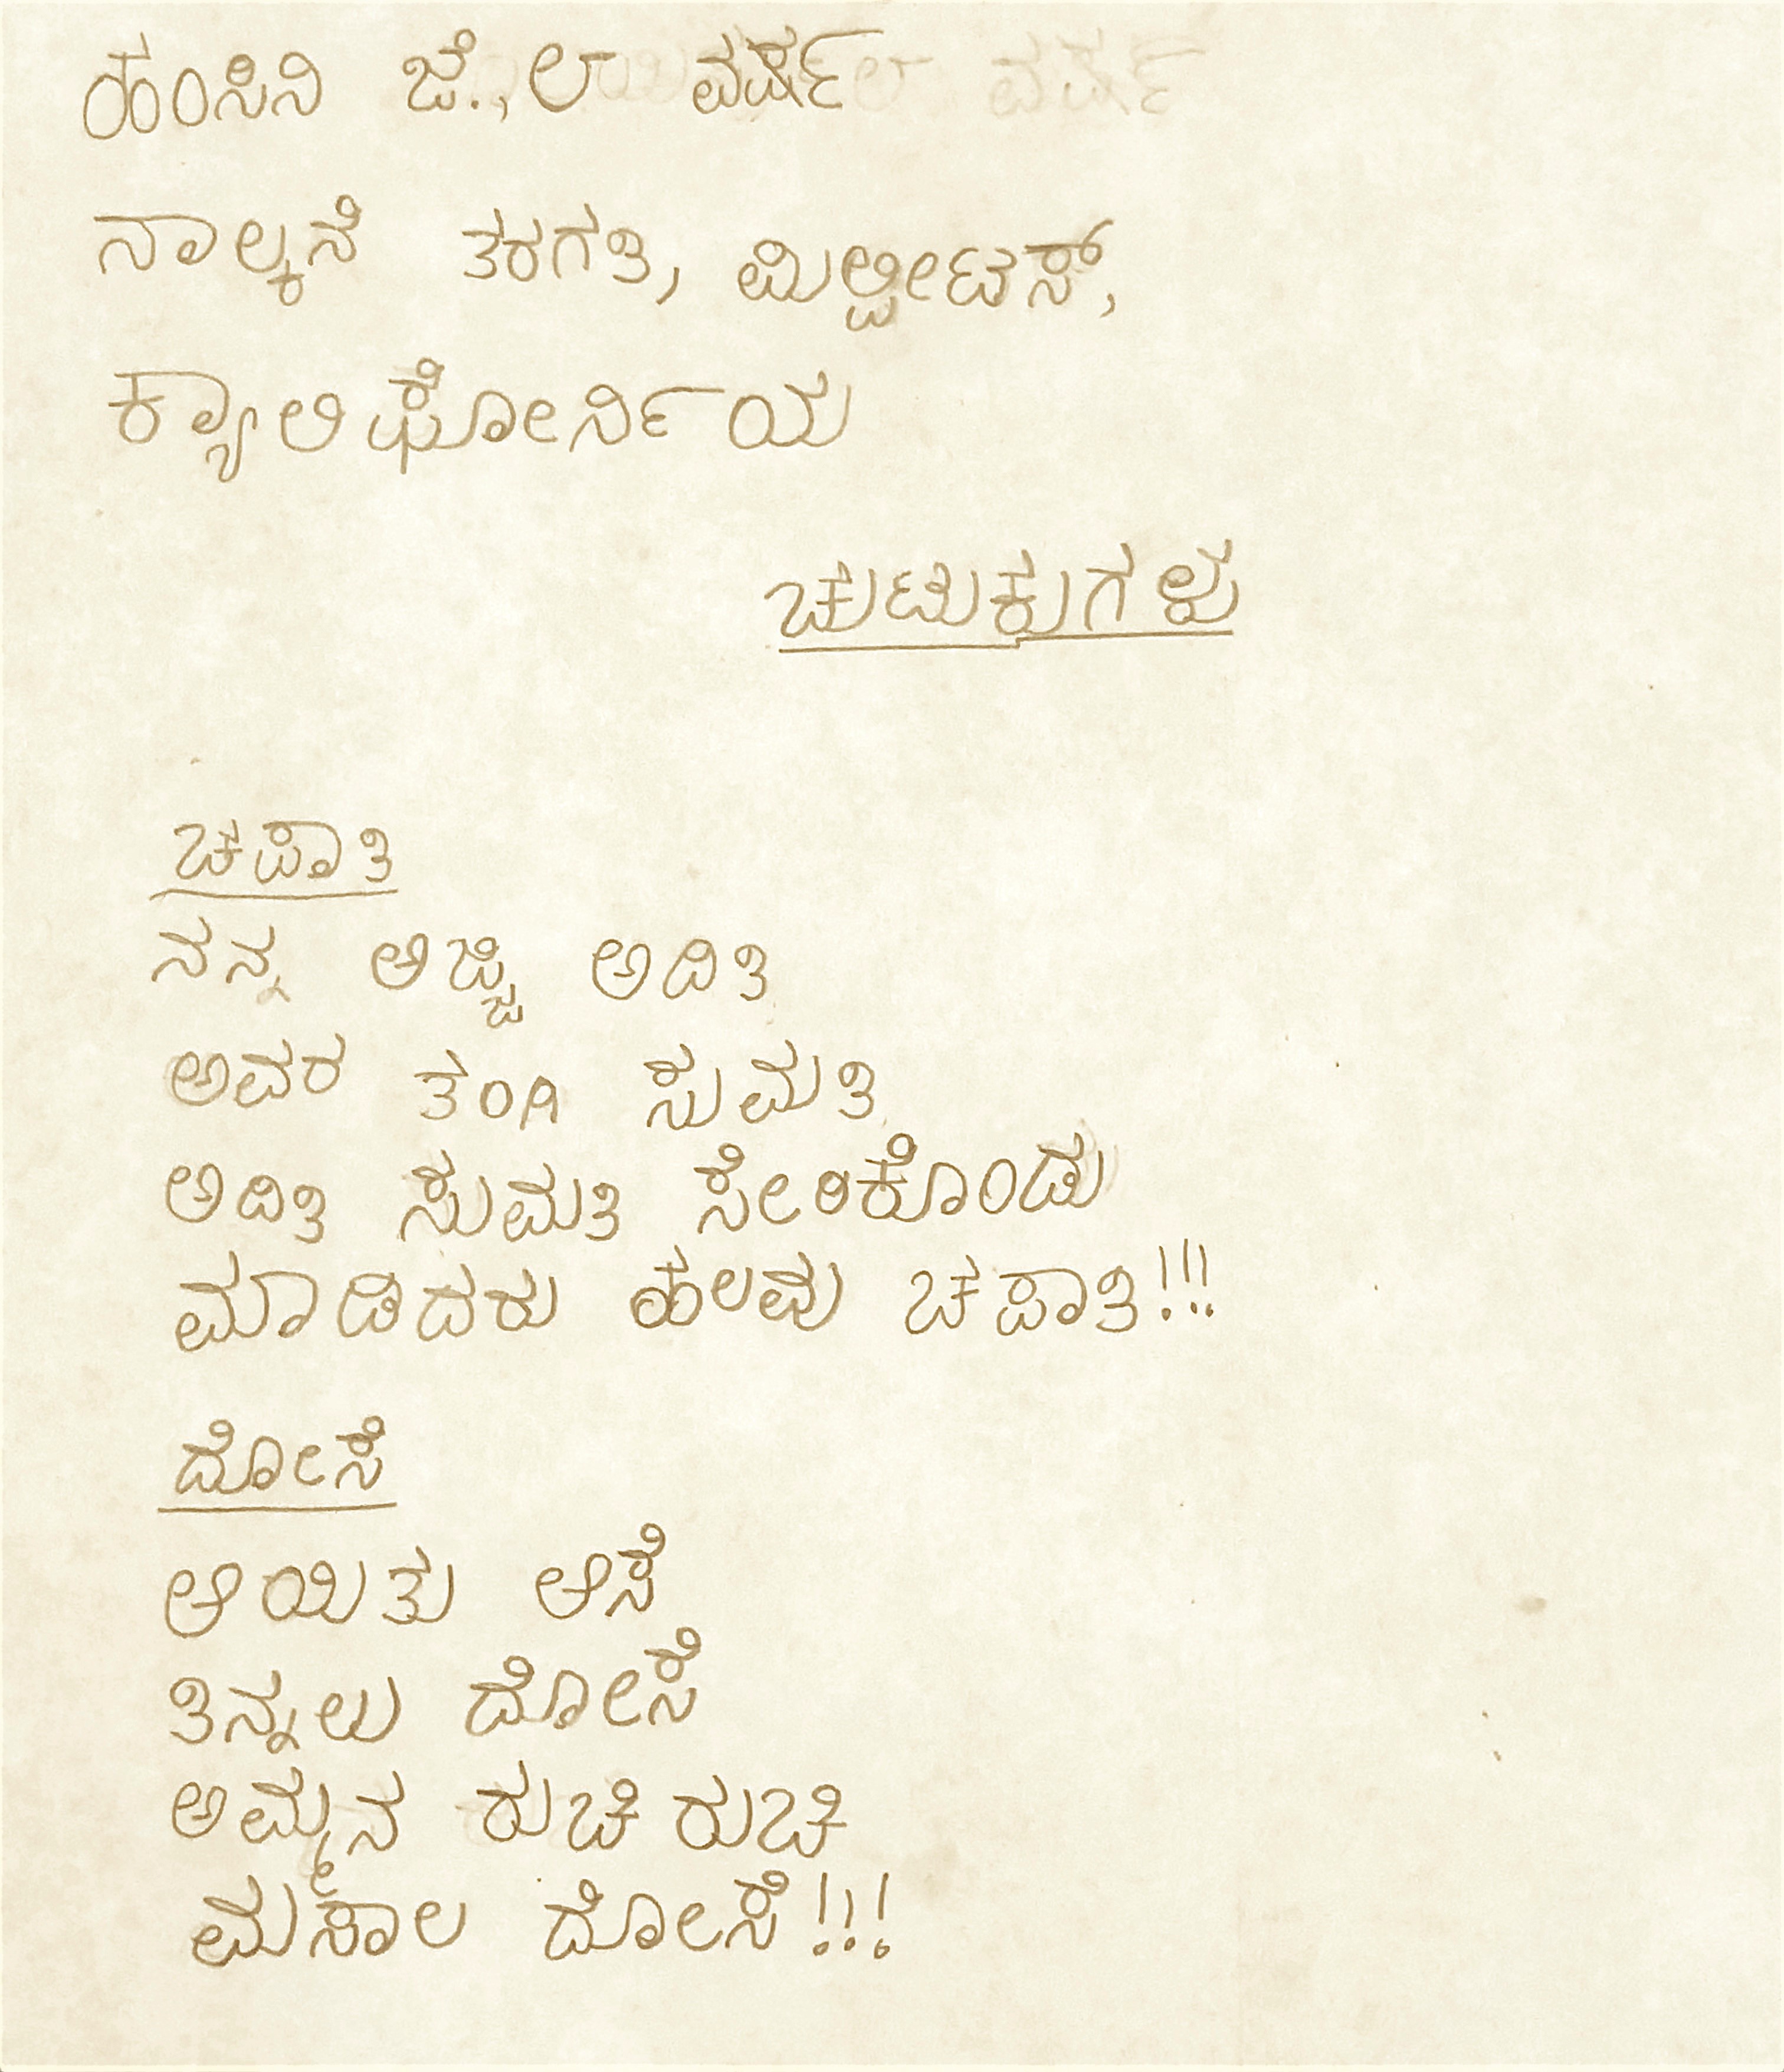 ಹಂಸಿನಿ ಜೆ., ೮ ವರ್ಷ
ನಾಲ್ಕನೆ ತರಗತಿ, ಮಿಲ್ಪೀಟಸ್,
ಕ್ಯಾಲಿಫೋರ್ನಿಯ
ಚುಟುಕುಗಳು
ಚಪಾತಿ
ನನ್ನ ಅಜ್ಜಿ ಅದಿತಿ
ಅವರ ತಂಗಿ ಸುಮತಿ
ಅದಿತಿ ಸುಮತಿ ಸೇರಿಕೊಂಡು
ಮಾಡಿದರು ಹಲವು ಚಪಾತಿ!!!
ದೋಸೆ
ಆಯಿತು ಆಸೆ
ತಿನ್ನಲು ದೋಸೆ
ಅಮ್ಮನ ರುಚಿ ರುಚಿ
ಮಸಾಲ ದೋಸೆ!!!